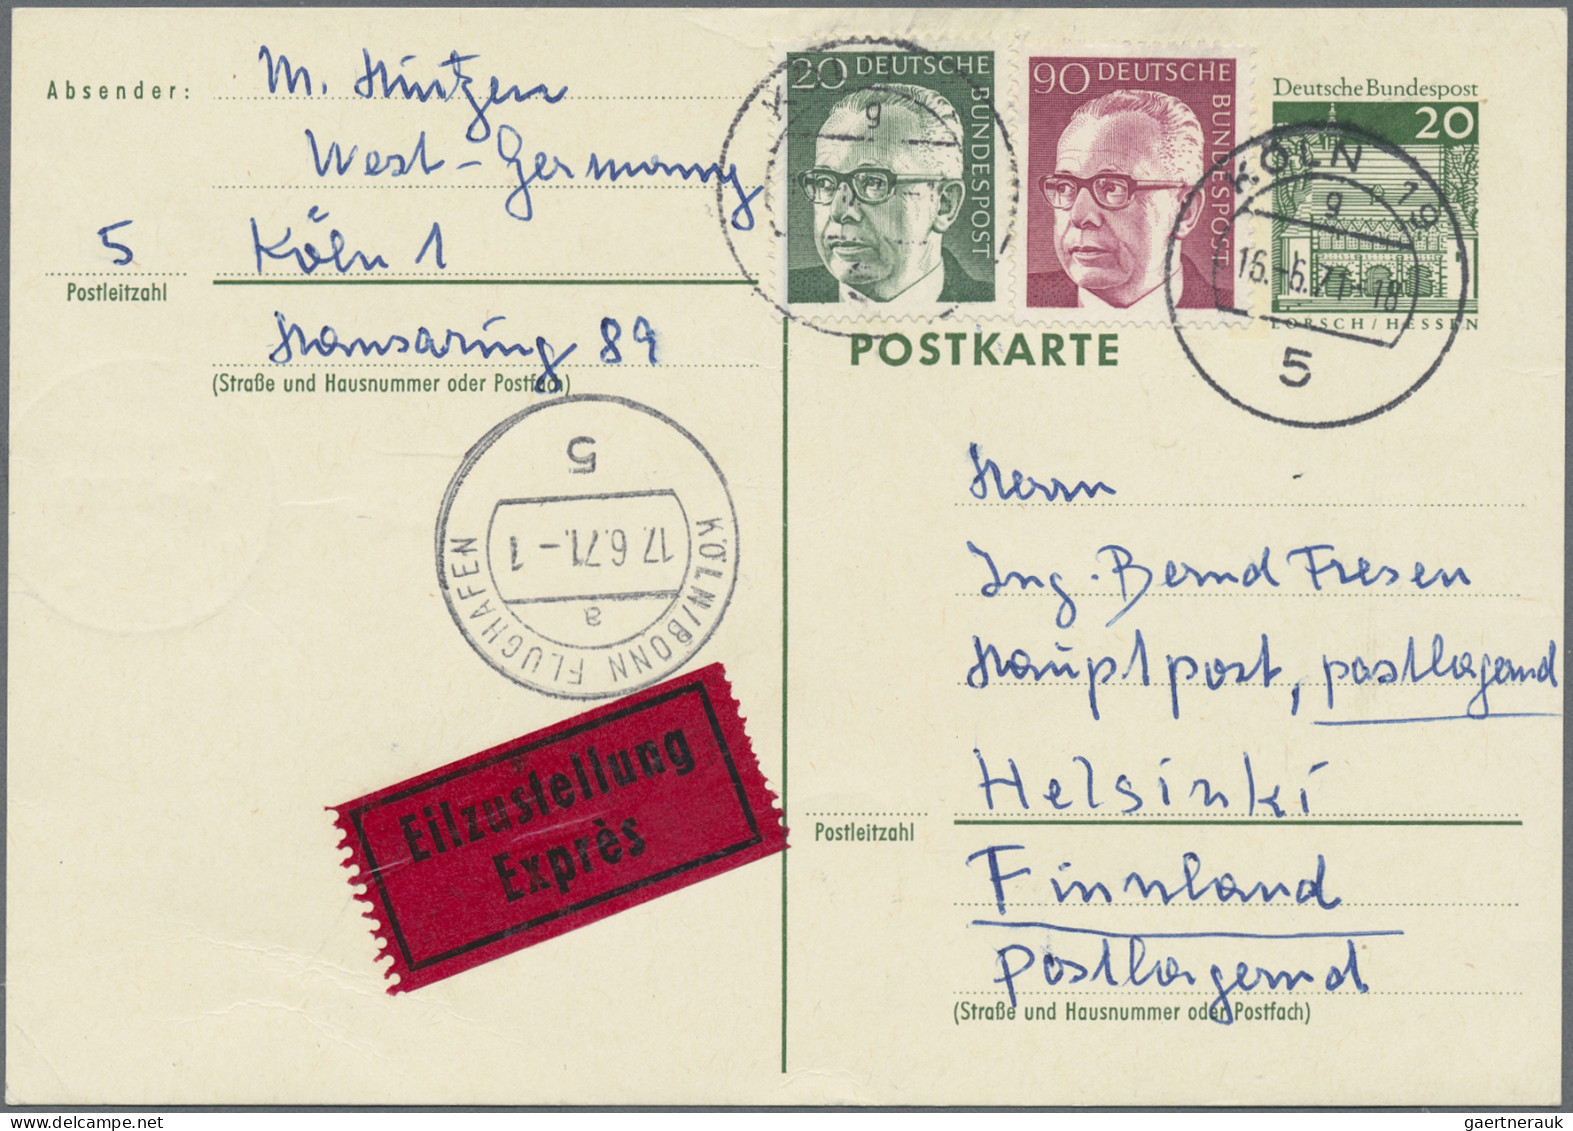 Absender:
M. Hintzen
West-Germany
5 Köln 1
Postleitzahl
Hansaring 89
(Straße und Hausnummer oder Postfach)
20 DEUTSCHE
BUNDESPOST
90 DEUTSCHE
BUNDESPOST
Deutsche Bundespost
20
LORSCH/HESSEN
g
KÖLN 19
g
16.-6.71-18
5
POSTKARTE
5
17.6.71.-1
a
KÖLN/BONN FLUGHAFEN
Eilzustellung
Exprès
Herrn
Ing. Bernd Fresen
Hauptpost, postlagernd
Helsinki
Postleitzahl
Finnland
postlagernd
(Straße und Hausnummer oder Postfach)
gaertnerauk